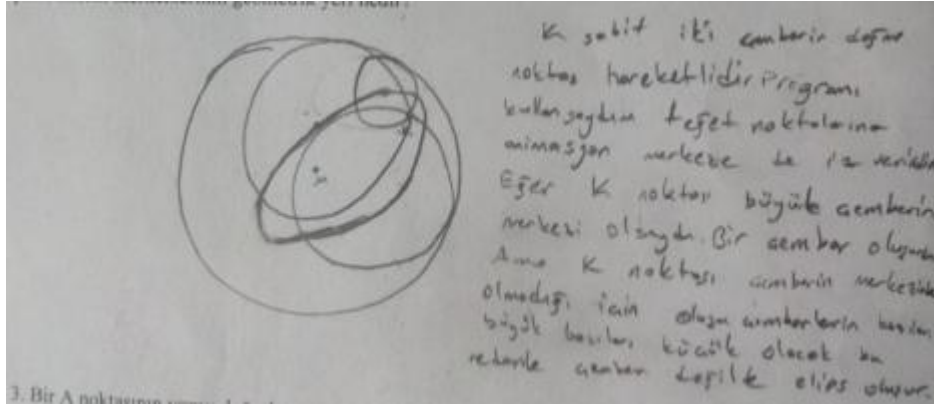 merkezlerinin geometrik yeri nedir?
K sabit iki çemberin değme
noktası hareketlidir Programı
kullansaydım teğet noktalarına
animasyon merkeze de iz
Eğer K noktası büyük çemberin
merkezi olsaydı. Bir çember
Ama K noktası çemberin
olmadığı için çemberlerin bazıları
büyük bazıları küçük olacak bu
nedenle çember değilde elips oluşur.
3. Bir A noktasının